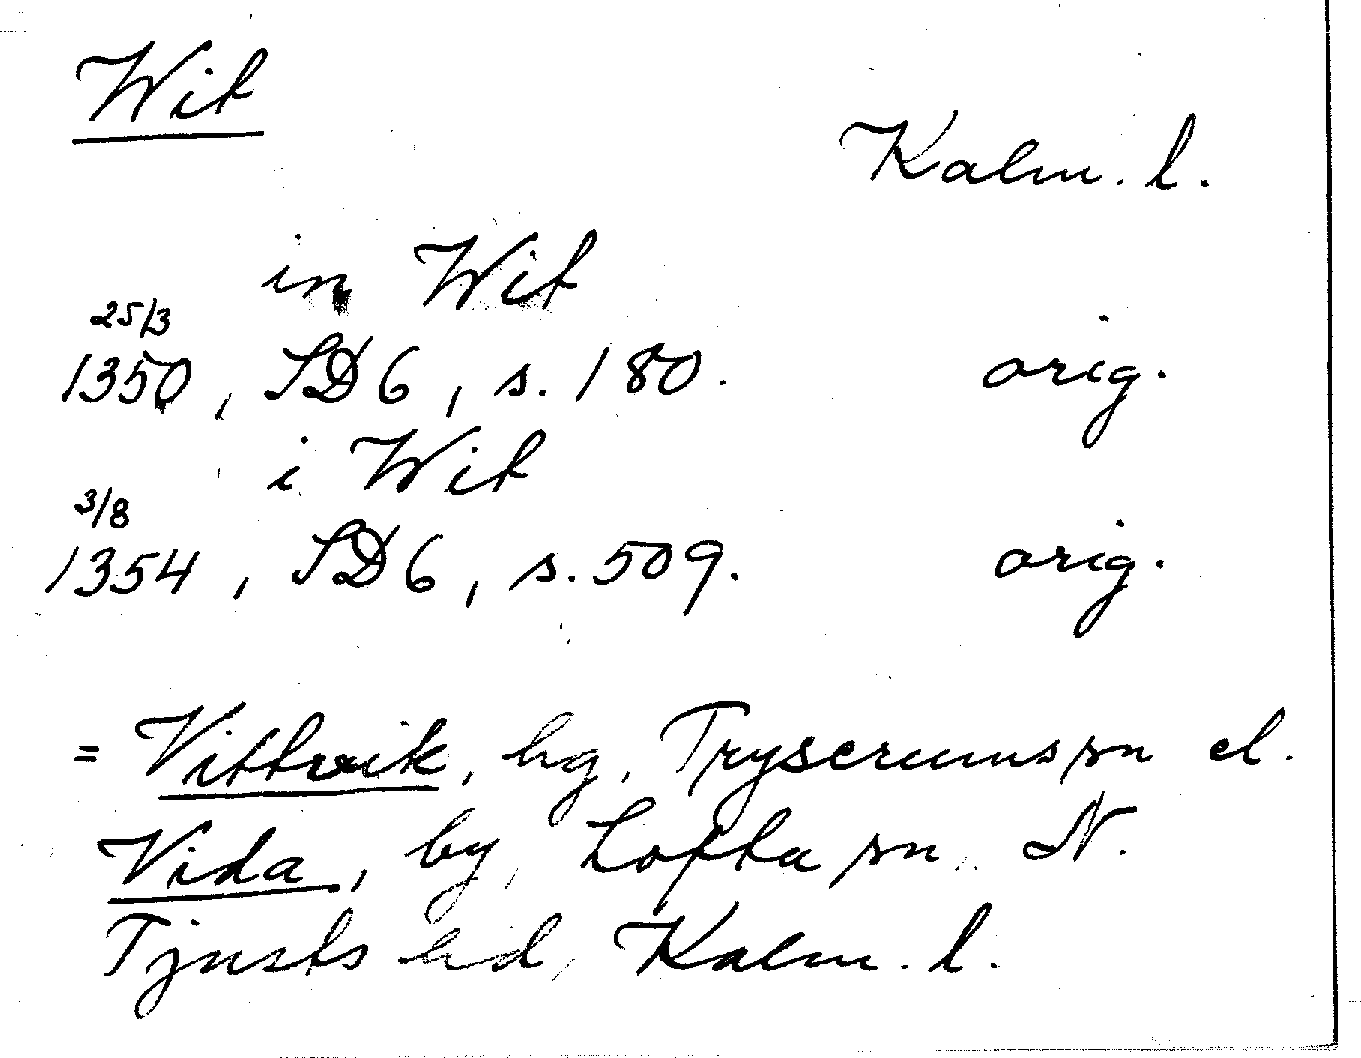 Wit
Kalm. l.
in Wit
25/3
1350, SD 6, s. 180. orig.
i Wit
3/8
1354, SD 6, s. 509. orig.
= Vittvik, hg, Tryserums sn el.
Vida, by, Lofta sn, N.
Tjusts hd, Kalm. l.